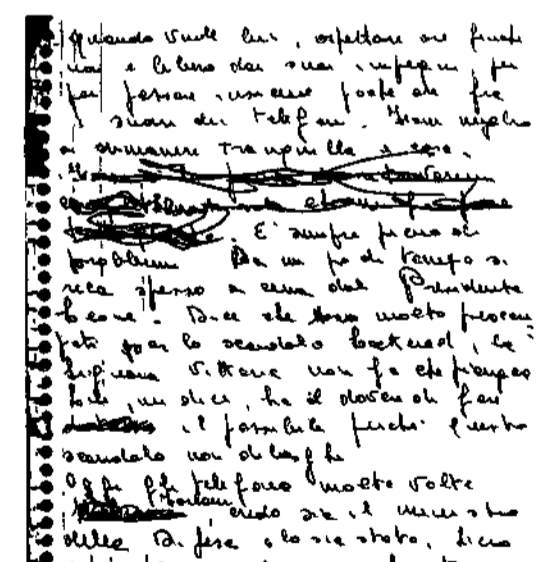 quando vuole lui, aspettare ore finché
non è libero dai suoi impegni, per
poi passare insieme poche ore fra
suoni di telefoni.
a rimanere tranquilla a casa.
E' sempre pieno di
problemi Da un po' di tempo si
reca spesso a cena dal Presidente
Leone. Dice che sono molto preoccu
pati per lo scandalo Lockheed, la
signora Vittoria non fa che piangere
lui, mi dice, ha il dovere di fare
il possibile perché questo
scandalo non dilaghi
Oggi gli telefono molte volte
credo sia il ministro
della Difesa o lo sia stato,